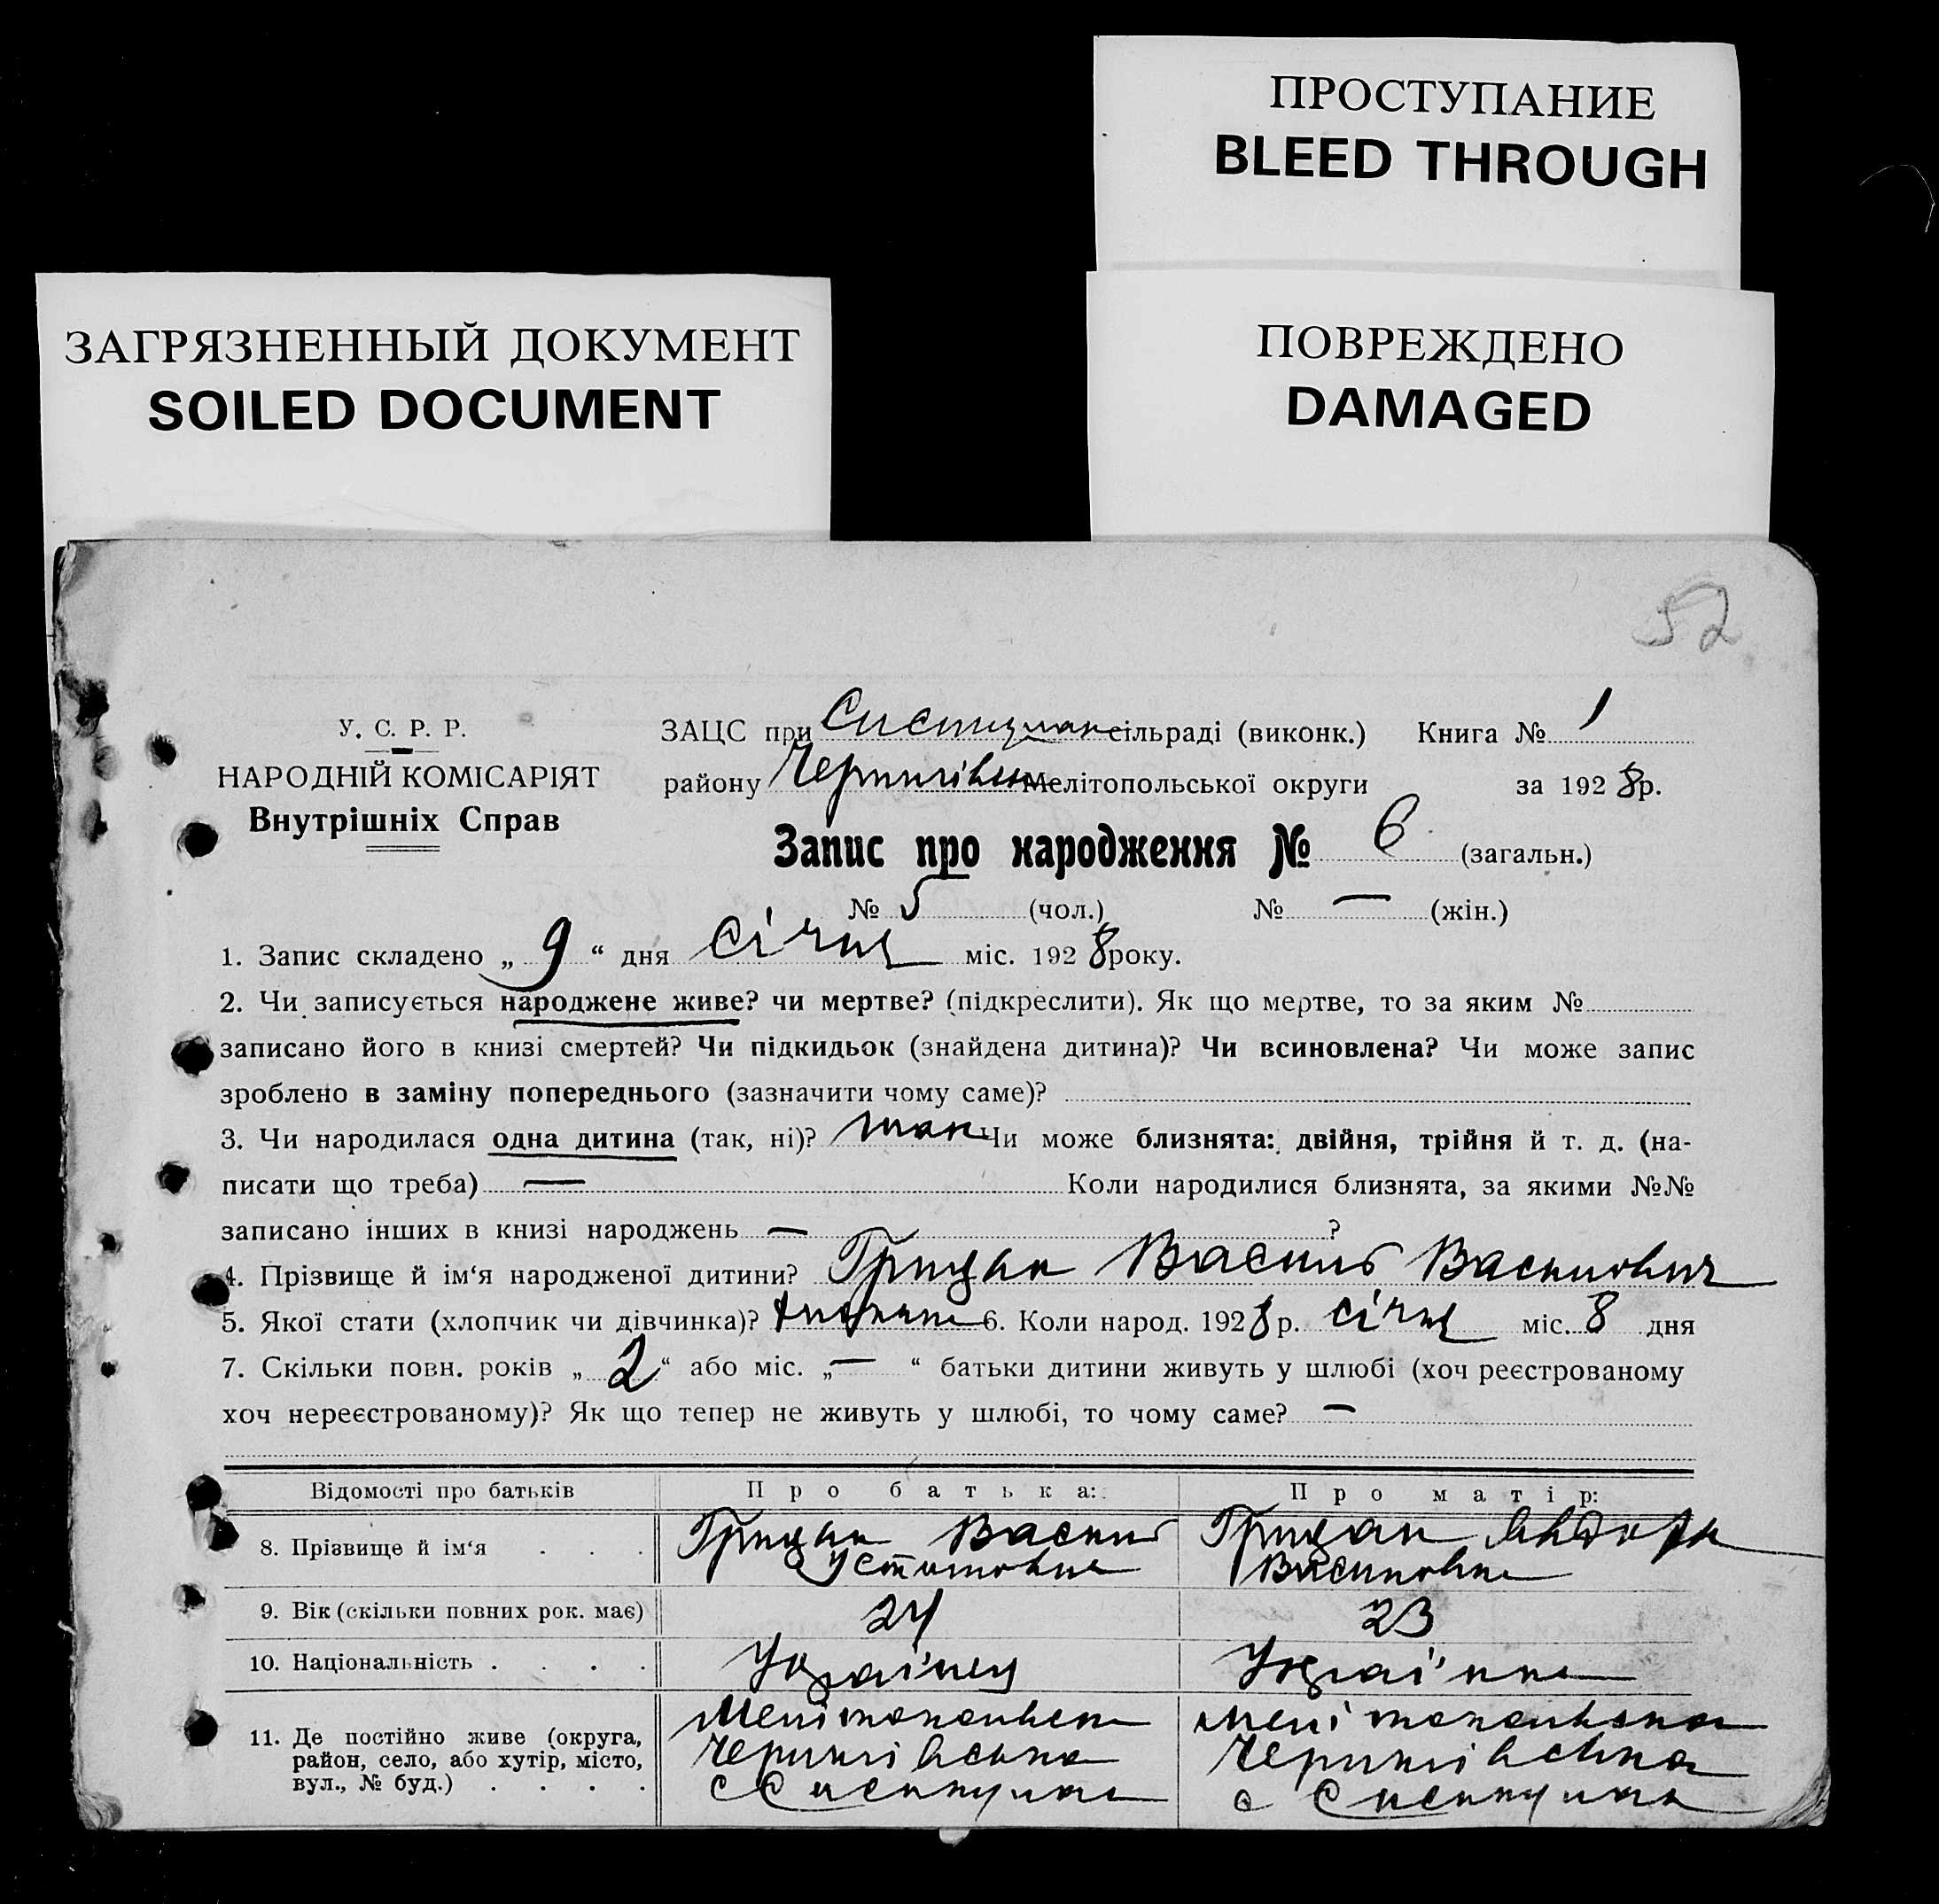 ПРОСТУПАНИЕ
BLEED THROUGH
ЗАГРЯЗНЕННЫЙ ДОКУМЕНТ
SOILED DOCUMENT
ПОВРЕЖДЕНО
DAMAGED
52
У. С. Р. Р.
НАРОДНІЙ КОМІСАРІЯТ
Внутрішніх Справ
ЗАЦС при сільраді (виконк.) Книга № 1
району Чернигівськ Мелітопольської округи за 1928 р.
Запис про народження № 6 (загальн.)
№ 5 (чол.) № — (жін.)
1. Запис складено „ 9 “ дня січня міс. 1928 року.
2. Чи записується народжене живе? чи мертве? (підкреслити). Як що мертве, то за яким №
записано його в книзі смертей? Чи підкидьок (знайдена дитина)? Чи всиновлена? Чи може запис
зроблено в заміну попереднього (зазначити чому саме)?
3. Чи народилася одна дитина (так, ні)? так Чи може близнята: двійня, трійня й т. д. (на-
писати що треба) — Коли народилися близнята, за якими №№
записано інших в книзі народжень — ?
4. Прізвище й ім‘я народженої дитини? Грицан Василь Васильович
5. Якої стати (хлопчик чи дівчинка)? 6. Коли народ. 1928 р. січня міс. 8 дня
7. Скільки повн. років „ 2 “ або міс. „ — “ батьки дитини живуть у шлюбі (хоч реєстрованому
хоч нереєстрованому)? Як що тепер не живуть у шлюбі, то чому саме? —
Відомості про батьків Про батька: Про матір:
8. Прізвище й ім‘я . . . Грицан Василь Устимович Грицан Васильовна
9. Вік (скільки повних рок. має) 24 23
10. Національність . . . . Українец Українка
11. Де постійно живе (округа,
район, село, або хутір, місто,
вул., № буд.) . . . .
Мелітопольська Мелітопольська
Чернигівська Чернигівська
с с